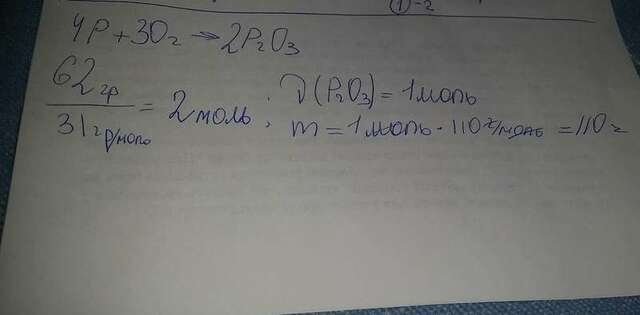 ①-2
4P + 3O₂ → 2P₂O₃
62 гр / 31 гр/моль = 2 моль; ν(P₂O₃) = 1 моль
m = 1 моль · 110 г/моль = 110 г